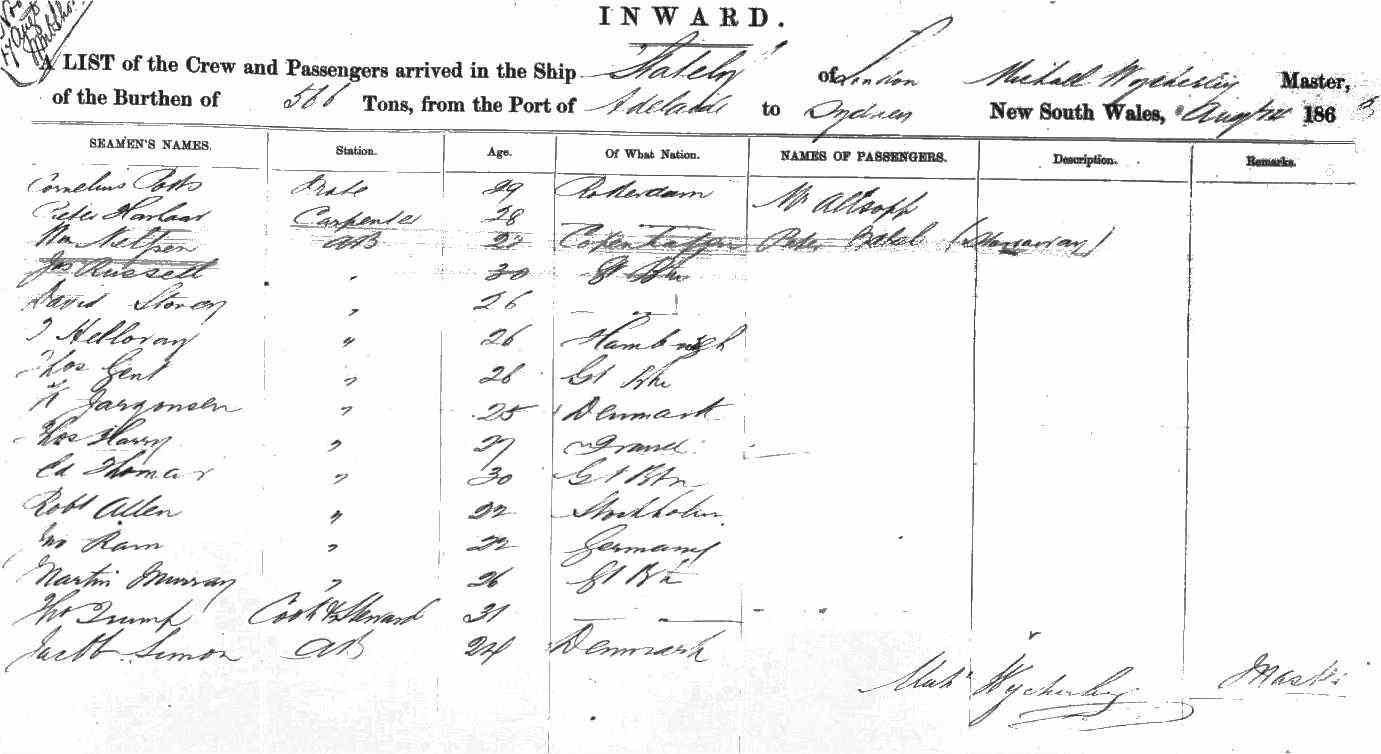 INWARD.
A LIST of the Crew and Passengers arrived in the Ship "Stately" of London Michael Wycherley Master,
of the Burthen of 566 Tons, from the Port of Adelaide to Sydney New South Wales, Aug 186
SEAMEN'S NAMES. Station. Age. Of What Nation. NAMES OF PASSENGERS. Description. Remarks.
Cornelius Potts 29 Rotterdam Mr Allsopp
Peter Carpenter 28
Wm AB Copenhagen Peter
Jas Russell " 30 Gt Btn
David Storey " 26
Helloray " 26 Hamburgh
Thos Gent " 28 Gt Btn
Jargonsen " 25 Denmark
Thos Harry " 27
Ed Thomas " 30 Gt Btn
Robt Allen " 22 Stockholm
Jno Ram " 22 Germany
Martin Murray " 26 Gt Btn
Tho Trump Cook & Steward 31
Jacob Simon AB 24 Denmark
Mich Wycherley Master